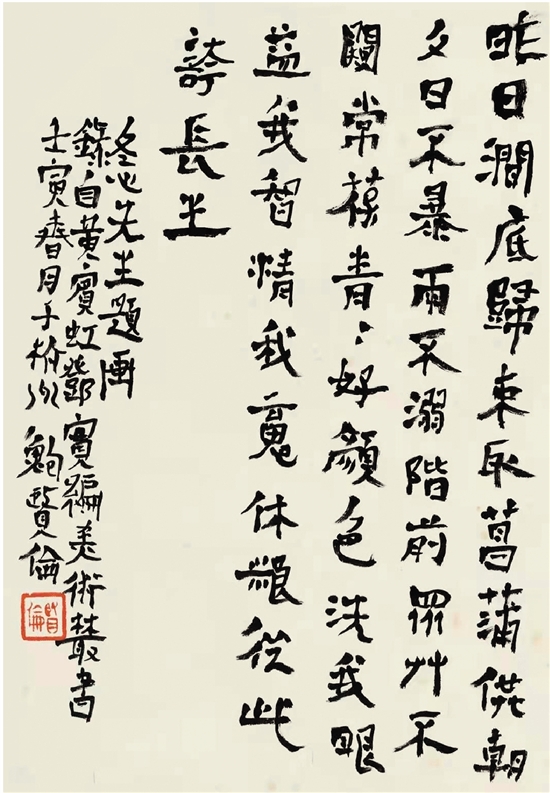 昨日澗底歸束取菖蒲供朝
夕日不暴雨不溺階前眾艸不
鬪常葆青〻好顏色洗我眼
益我智清我䰟休糧從此
誇長生
冬心先生題畫
錄自黃賓虹鄧實編美術叢書
壬寅春月于杭州 鮑賢倫
賢倫